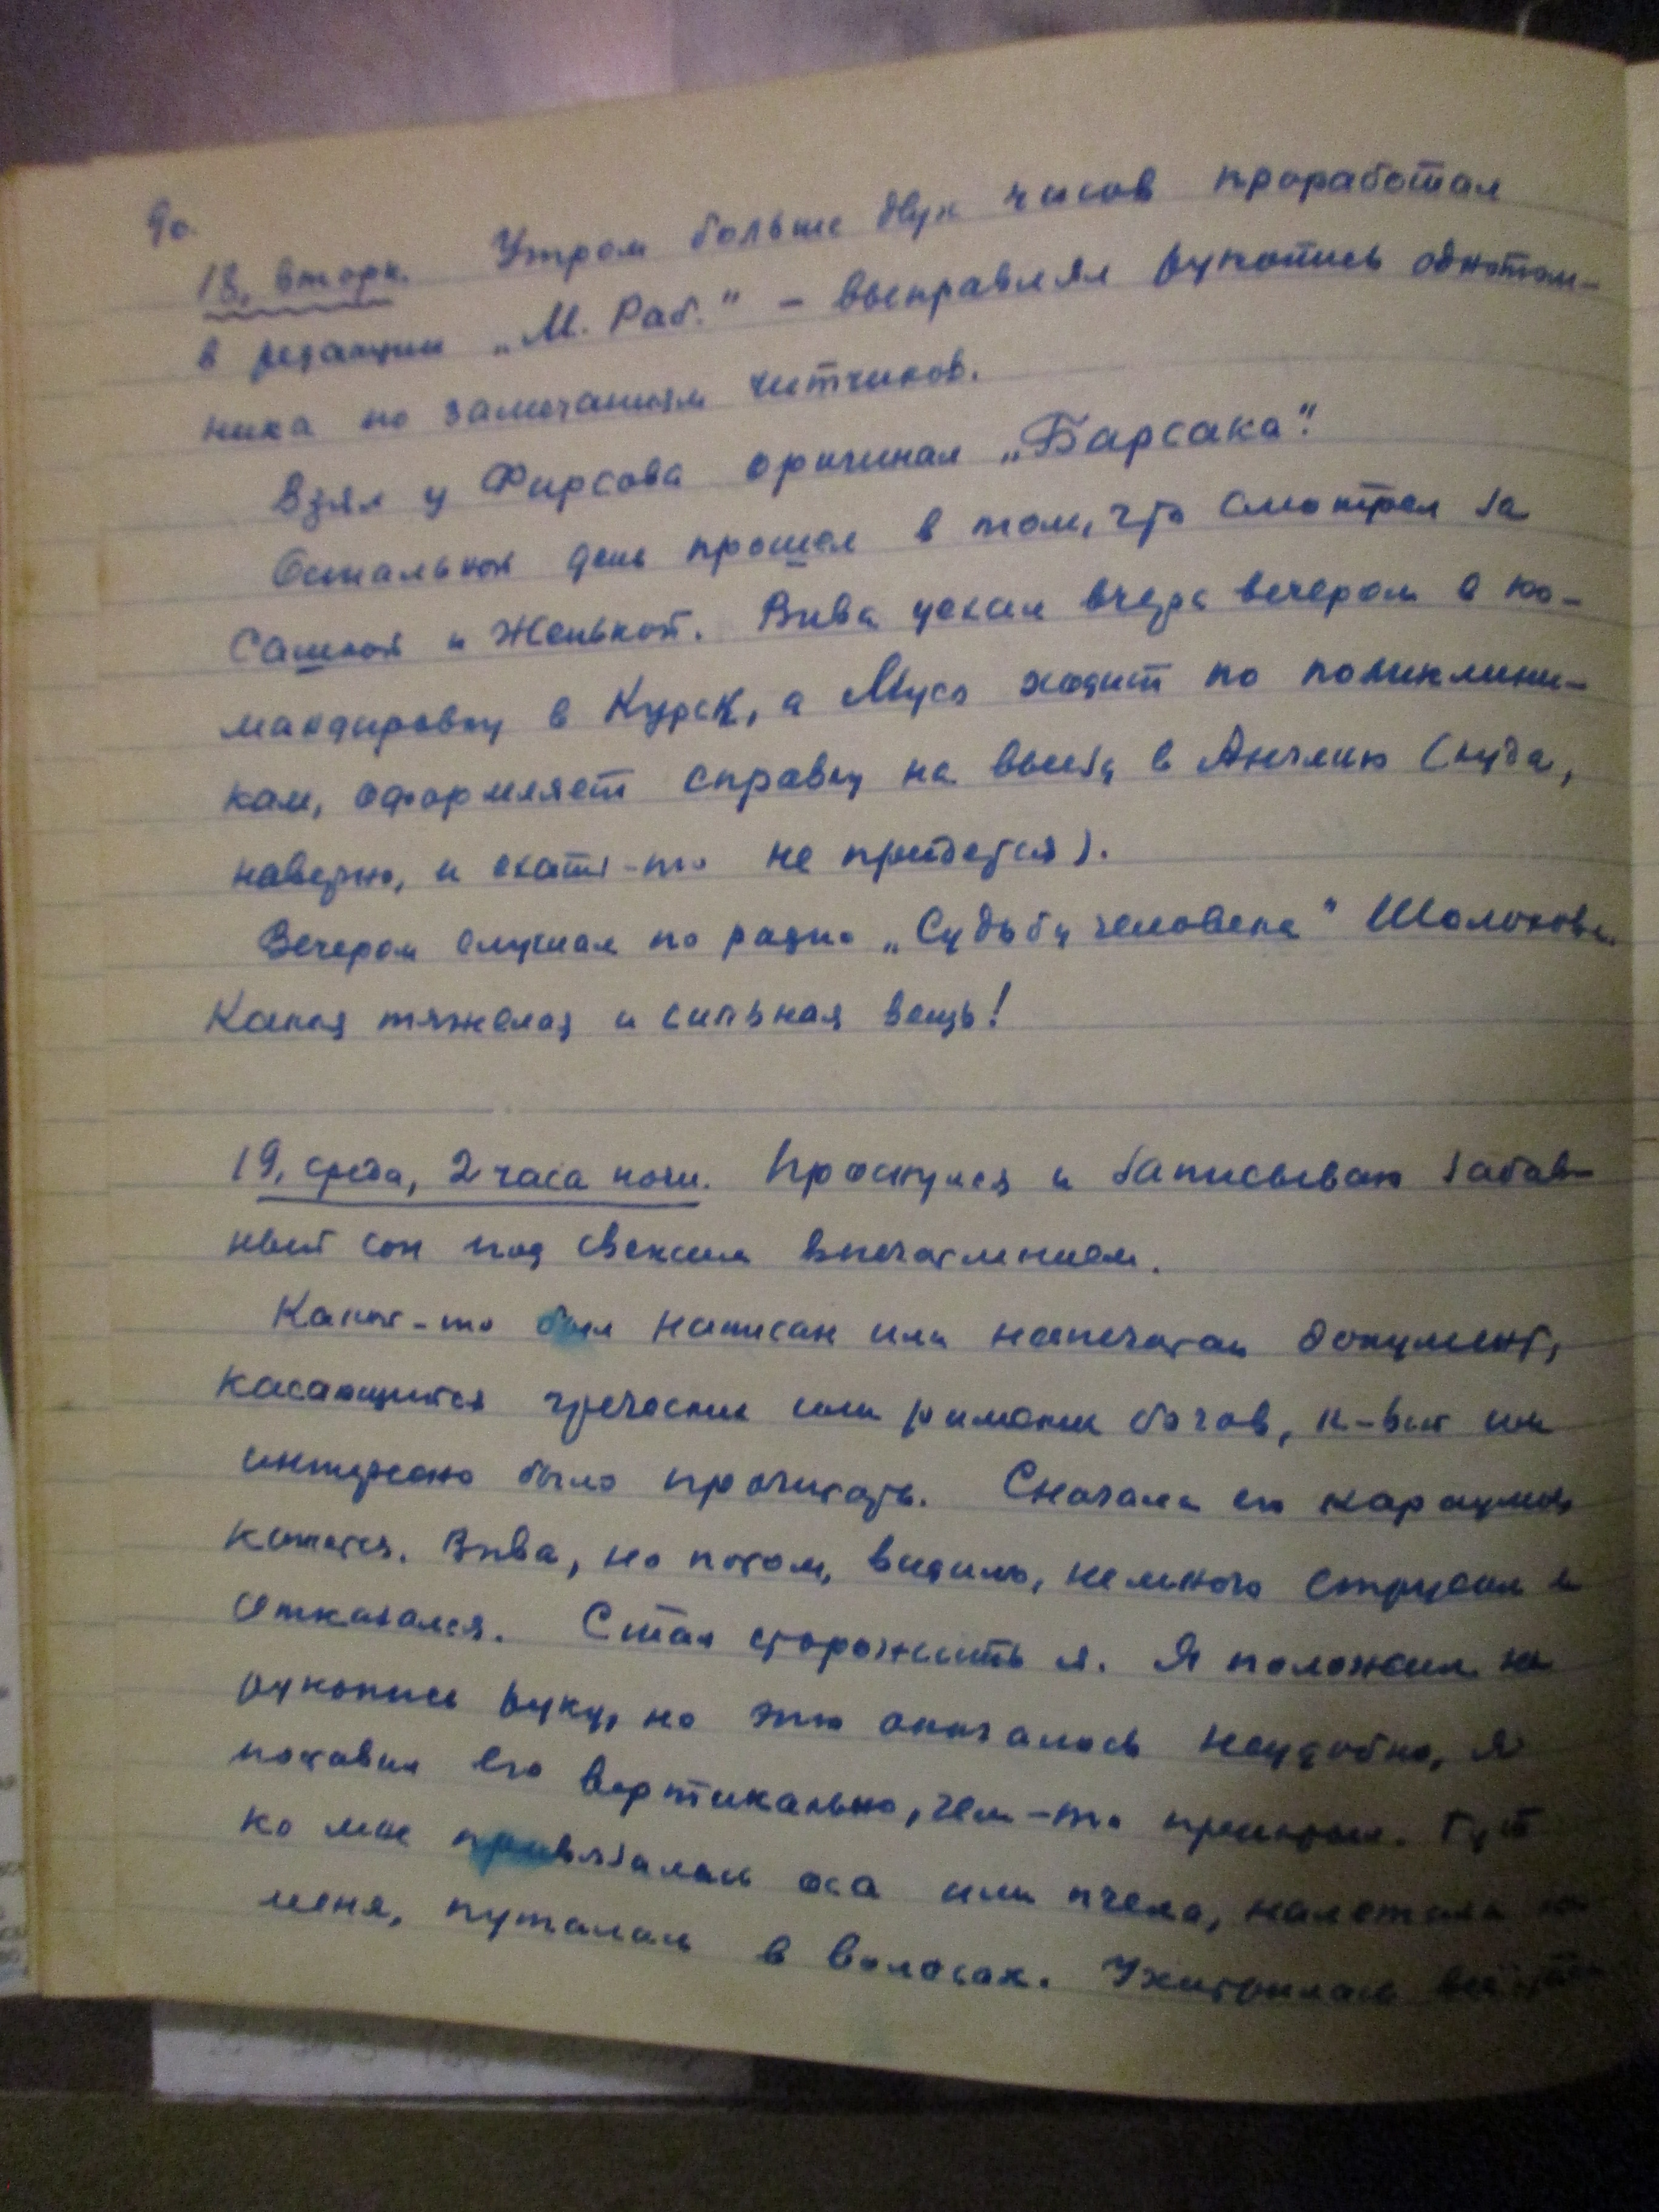 90.
18, вторн. Утром больше двух часов проработал
в редакции „М. Раб." – выправлял рукопись однотом-
ника по замечаниям читчиков.
Взял у Фирсова оригинал „Барсака".
Остальной день прошел в том, что смотрел за
Сашкой и Женькой. Вива уехал вчера вечером в ко-
мандировку в Курск, а Муся ходит по поликлини-
кам, оформляет справку на выезд в Англию (куда,
наверно, и ехать-то не придется).
Вечером слушал по радио „Судьбу человека" Шолохова.
Какая тяжелая и сильная вещь!
19, среда, 2 часа ночи. Проснулся и записываю забав-
ный сон под свежим впечатлением.
Какой-то был написан или напечатан документ,
касающийся греческих или римских богов, к-рый им
нужно было прочитать. Сначала его караулил
кажется. Вива, но потом, видимо, немного струсил и
отказался. Стал сторожить я. Я положил на
рукопись руку, но это оказалось неудобно, я
поставил его вертикально, чем-то прикрыл. Тут
ко мне привязалась оса или пчела, налетала на
меня, путалась в волосах. Ухитрилась